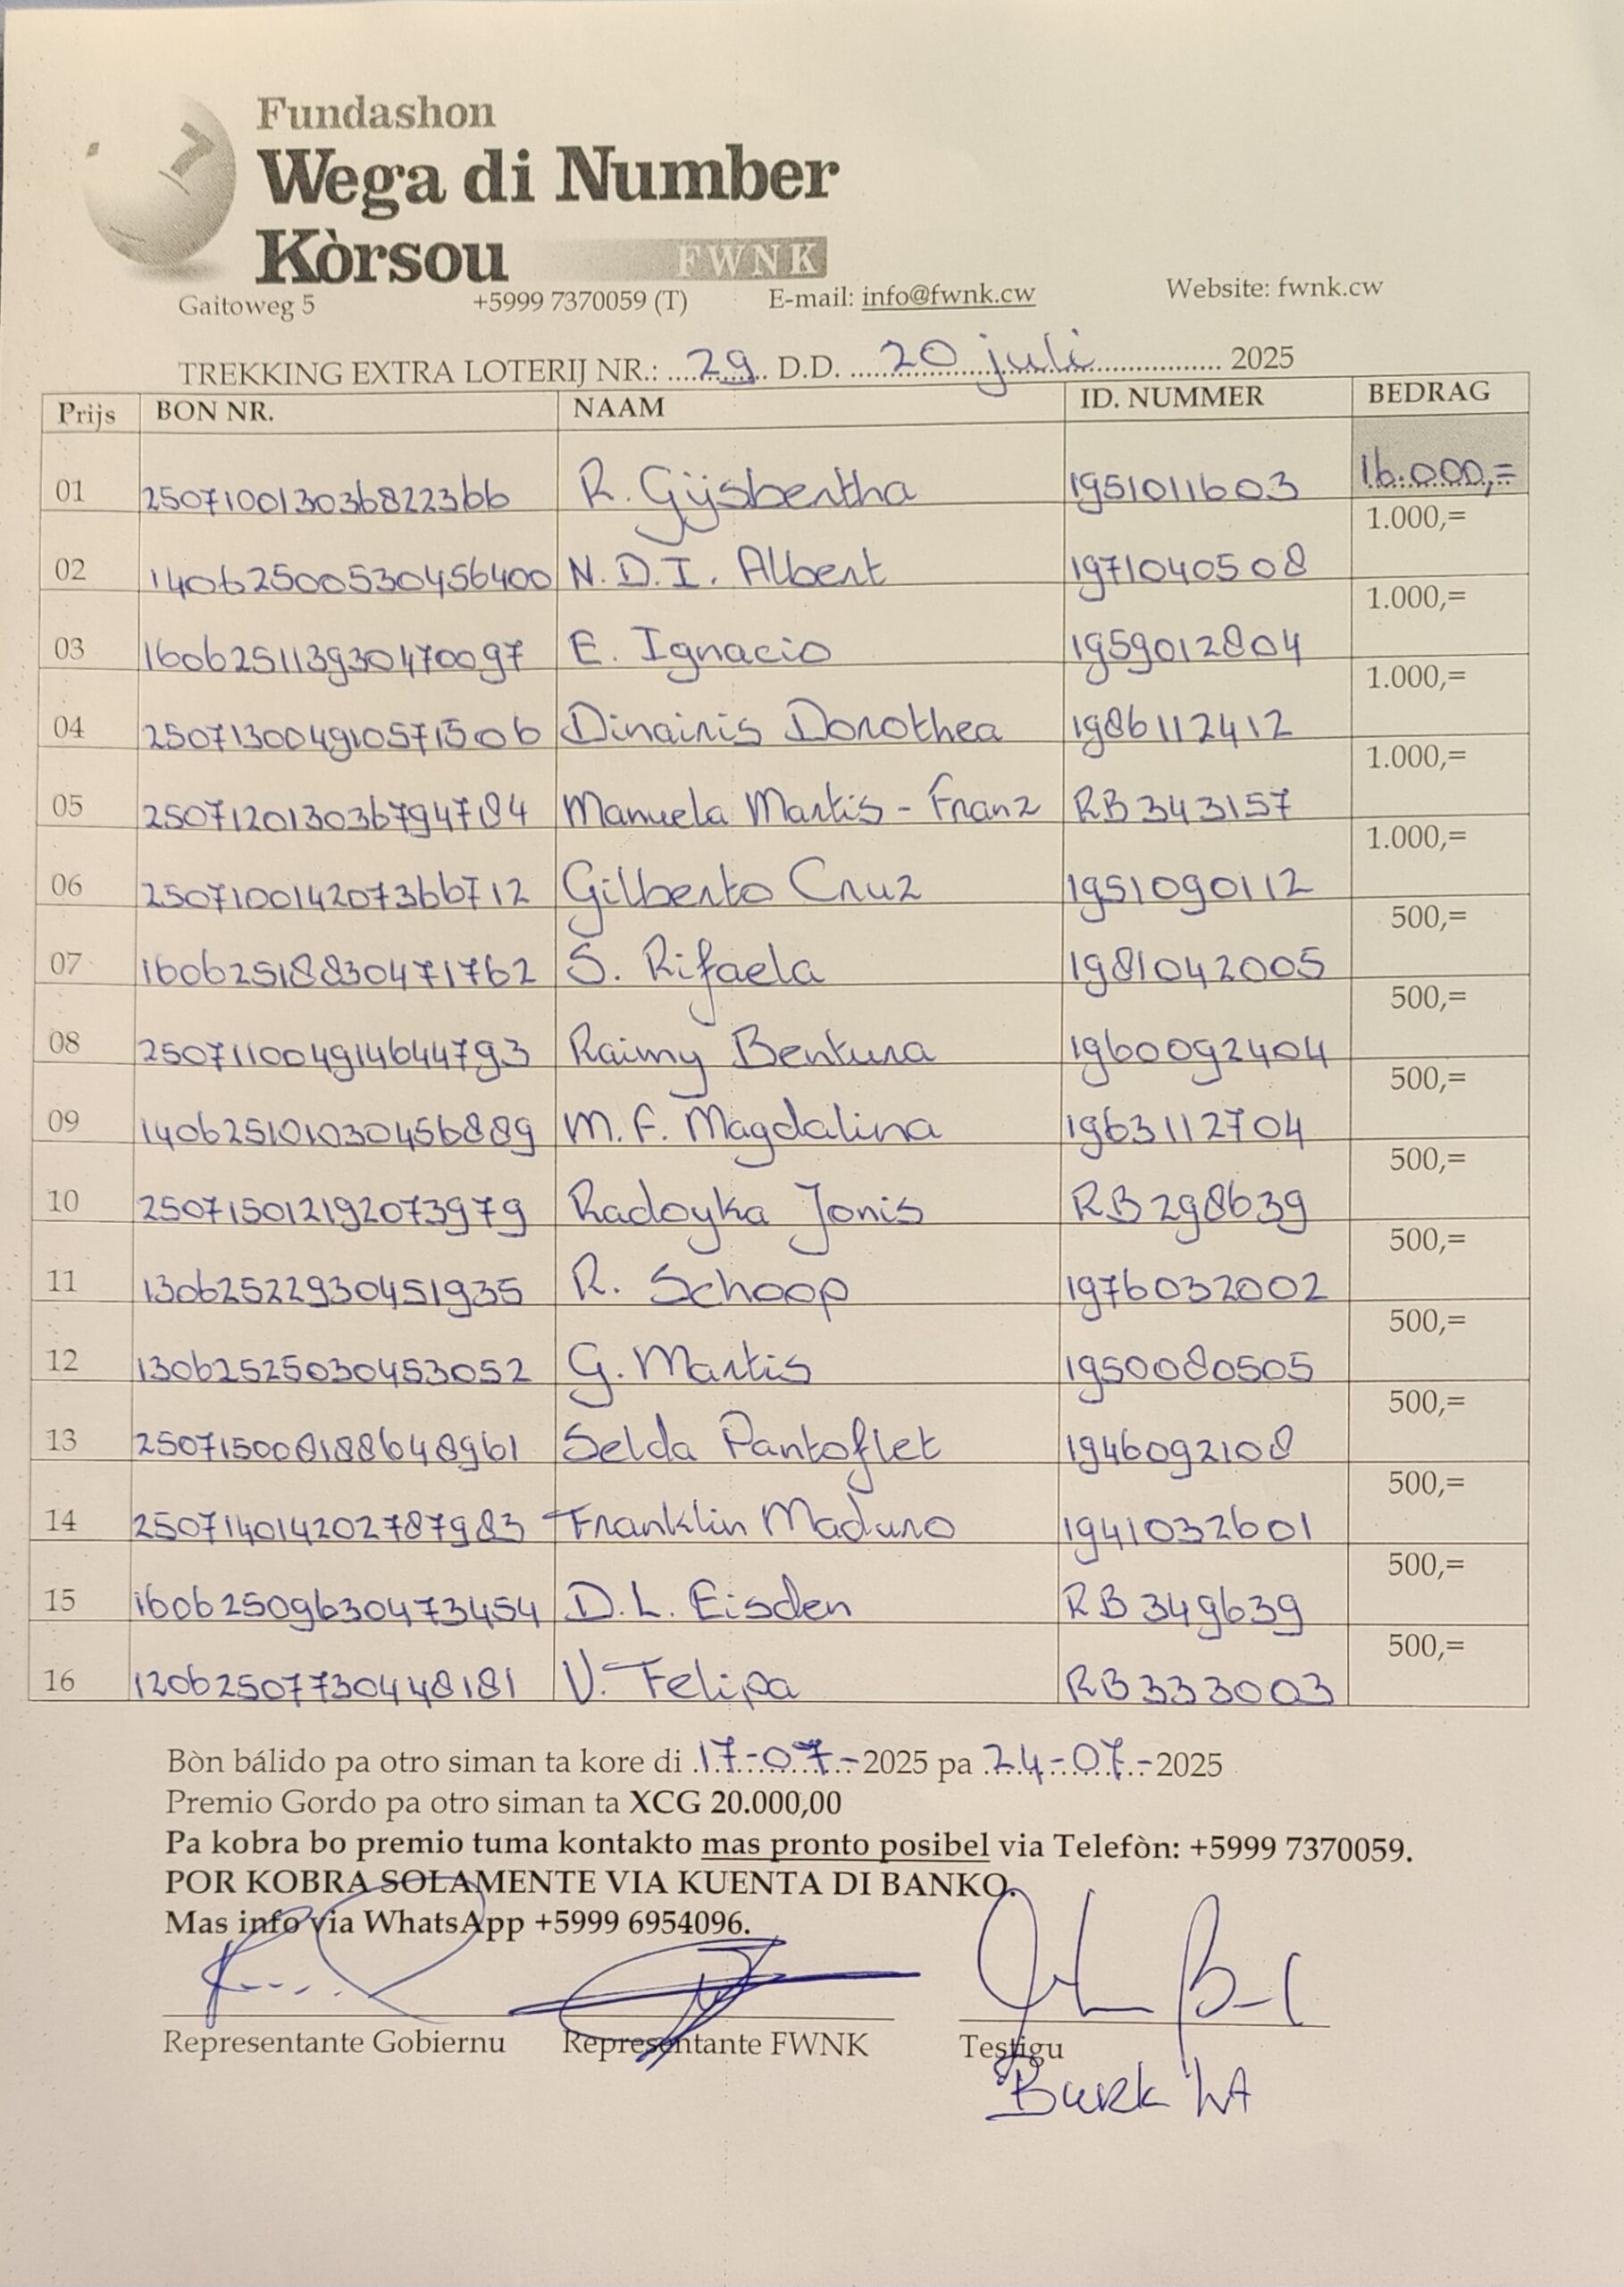 Fundashon
Wega di Number
Kòrsou FWNK
Gaitoweg 5 +5999 7370059 (T) E-mail: info@fwnk.cw Website: fwnk.cw
TREKKING EXTRA LOTERIJ NR.: 29 D.D. 20 juli 2025
Prijs BON NR. NAAM ID. NUMMER BEDRAG
01 25071001303682236б R. Gijsbertha 1951011603 16.000,=
1.000,=
02 14062500530456400 N.D.I. Albert 1971040508
1.000,=
03 160625113930470097 E. Ignacio 1959012804
1.000,=
04 250713004910571506 Dinairis Dorothea 1986112412
1.000,=
05 250712013036794784 Manuela Martis - Franz RB343157
1.000,=
06 250710014207366712 Gilberto Cruz 1951090112
500,=
07 16062518830471762 S. Rifaela 1981042005
500,=
08 250711004914644793 Raimy Bentura 1960092404
500,=
09 14062510103045б889 M.F. Magdalina 1963112704
500,=
10 250715012192073979 Radoyka Jonis RB298639
500,=
11 13062522930451935 R. Schoop 1976032002
500,=
12 13062525030453052 G. Martis 1950080505
500,=
13 250715008188648961 Selda Pantoflet 1946092108
500,=
14 250714014202787983 Franklin Maduro 1941032601
500,=
15 16062509630473454 D.L. Eisden RB349639
500,=
16 12062507730448181 V. Felipa RB333003
Bòn bálido pa otro siman ta kore di 17-07-2025 pa 24-07-2025
Premio Gordo pa otro siman ta XCG 20.000,00
Pa kobra bo premio tuma kontakto mas pronto posibel via Telefòn: +5999 7370059.
POR KOBRA SOLAMENTE VIA KUENTA DI BANKO.
Mas info via WhatsApp +5999 6954096.
Representante Gobiernu Representante FWNK Testigu
Burk